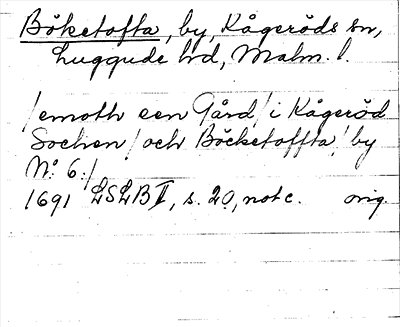 Böketofta, by, Kågeröds sn,
Luggude hd, Malm. l.
/emoth een Gård/ i Kågeröd
Sochen/ och Böcketoffta/ by
No 6:/
1691 LSLB II, s. 20, not c. orig.